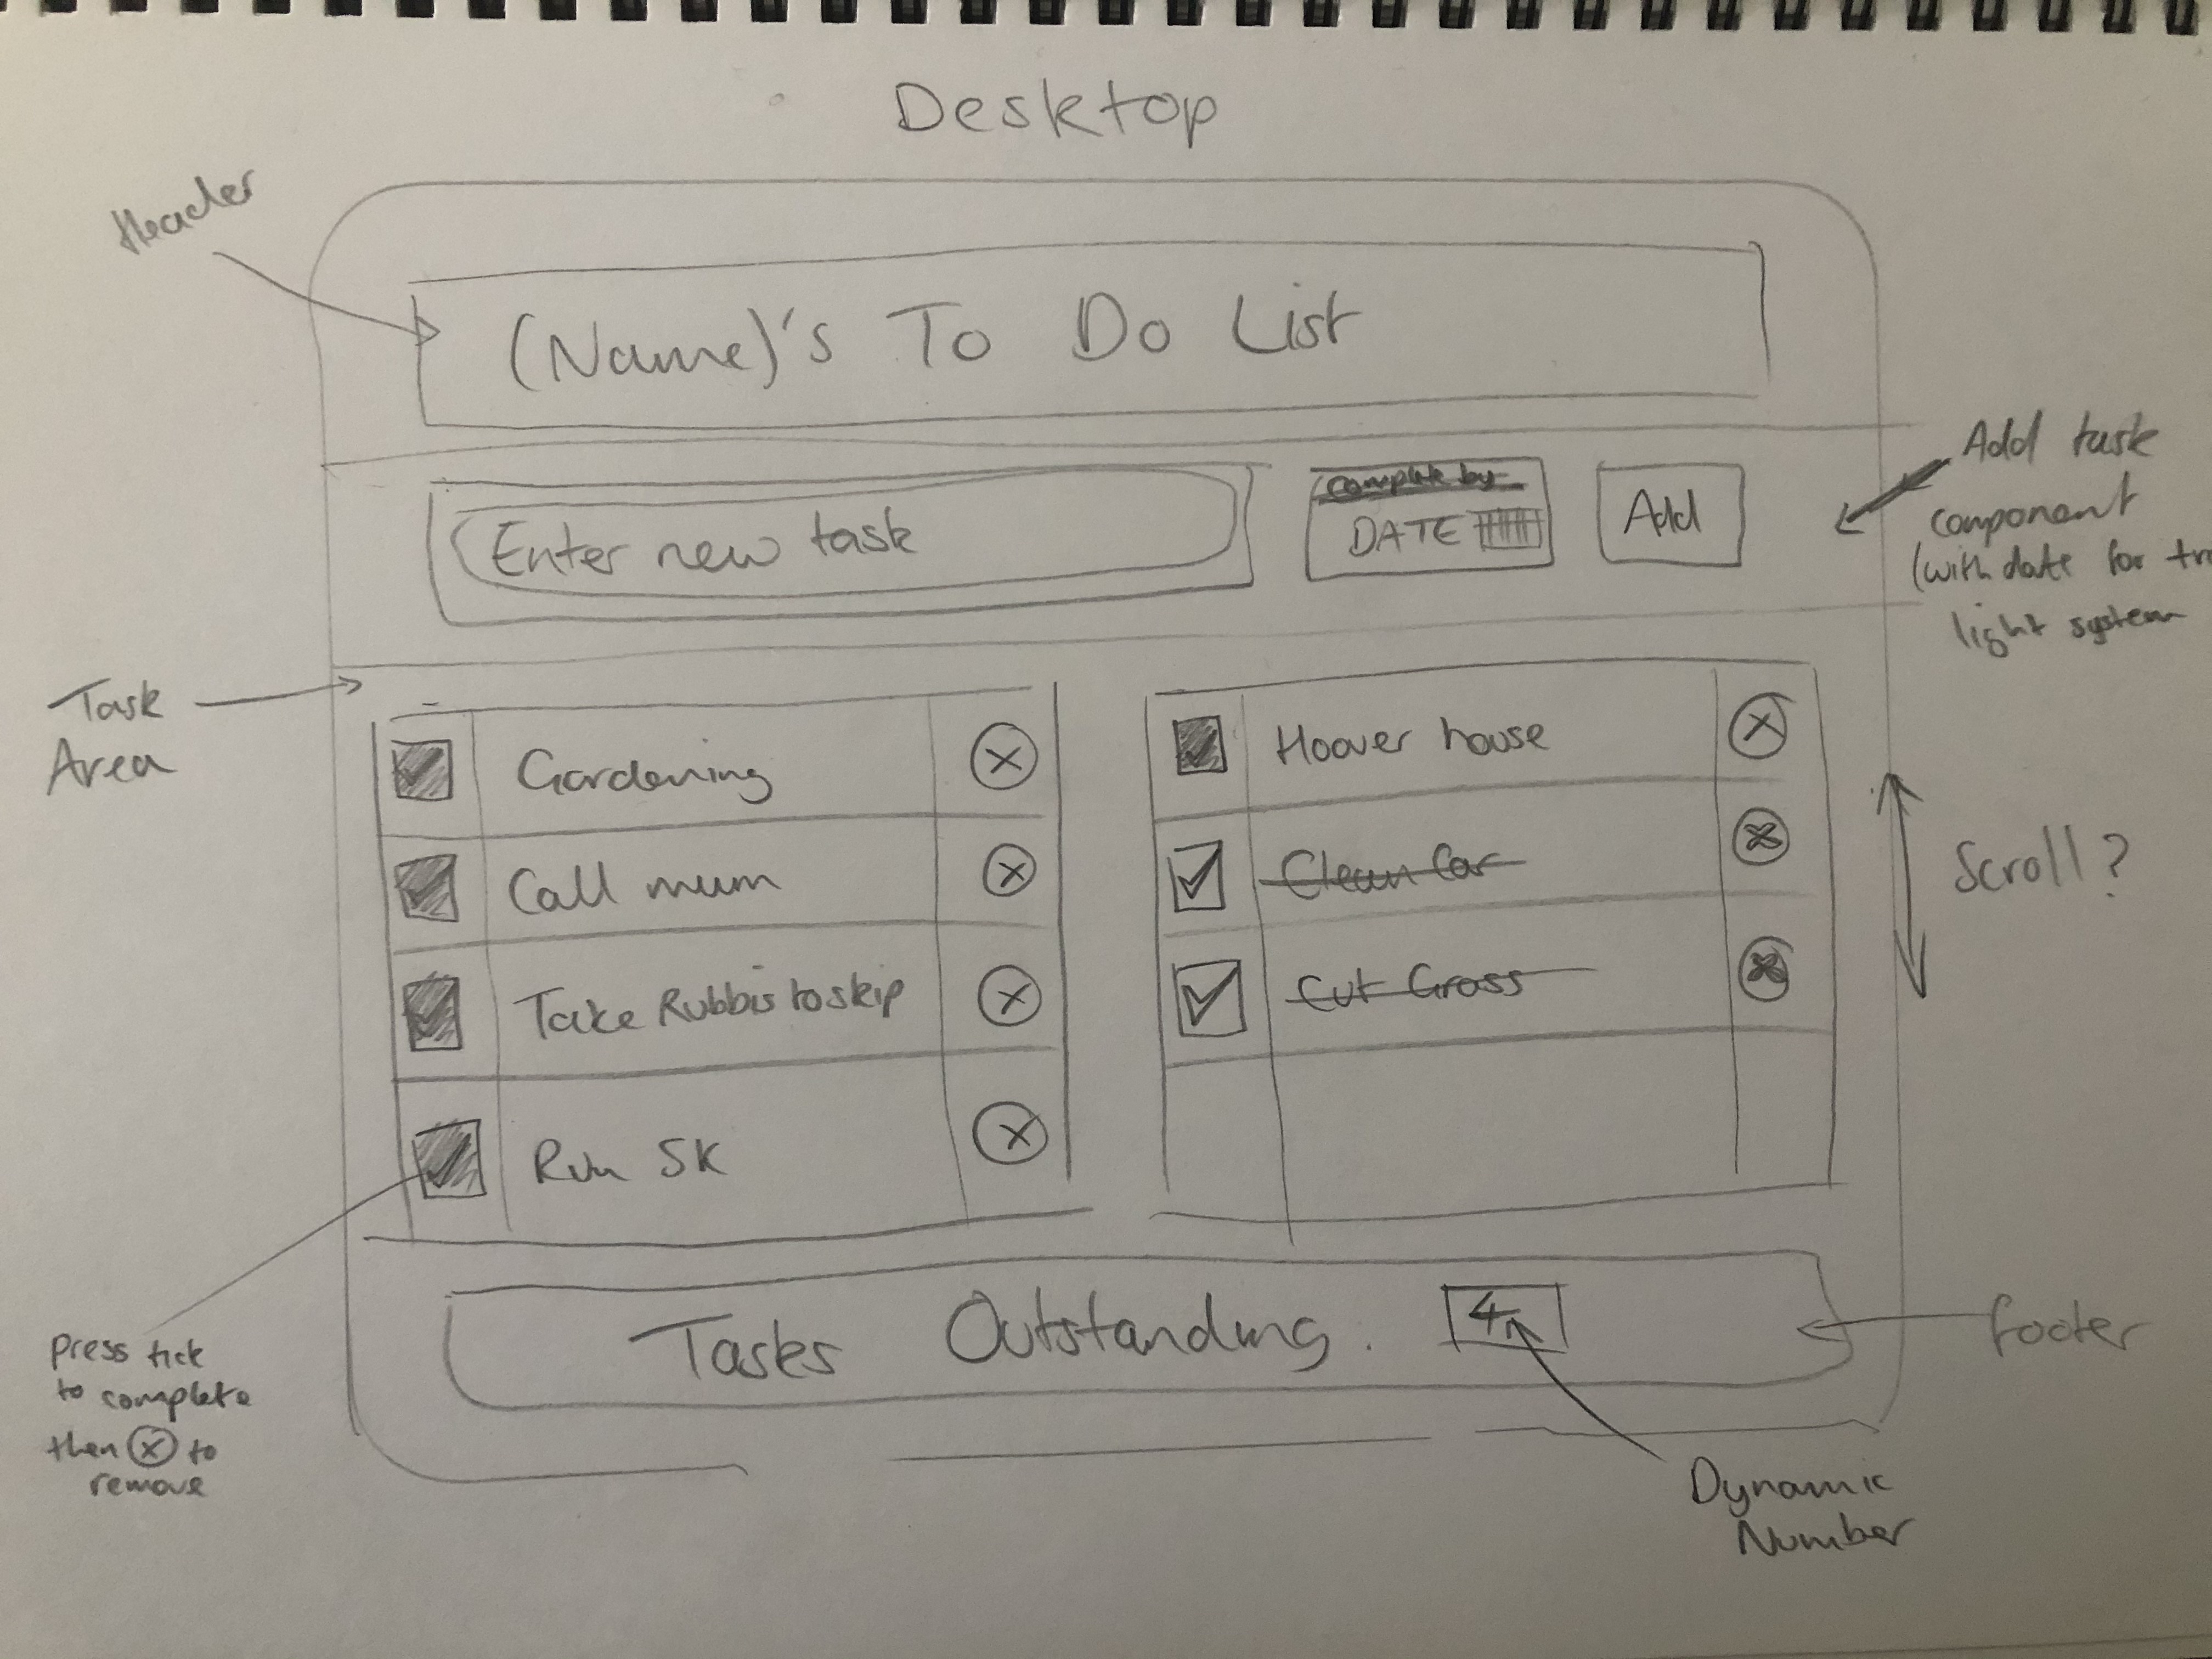 Desktop
Header
(Name)'s To Do List
Enter new task
complete by
DATE
Add
Add task
component
(with date for
light system
Task
Area
Gardening
Call mum
Take Rubbis to skip
Run 5K
Hoover house
Clean Car
Cut Grass
Scroll?
Press tick
to complete
then x to
remove
Tasks Outstanding. 4
Dynamic
Number
footer